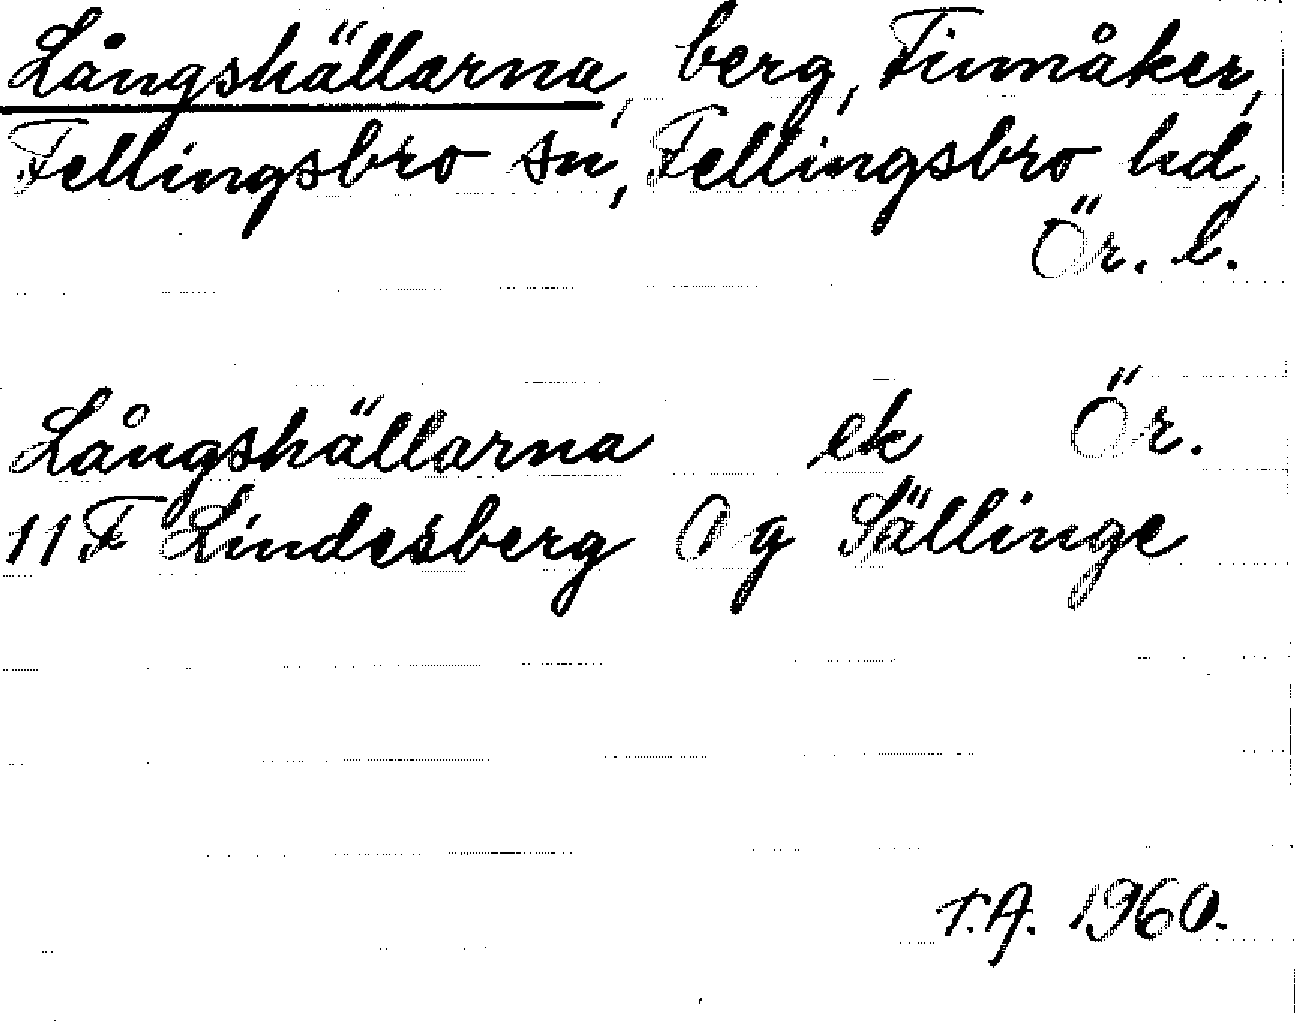 Långshällarna, berg, Finnåker,
Fellingsbro sn, Fellingsbro hd,
Ör. l.
Långshällarna ek Ör.
11 F Lindesberg 0 g Sällinge
T.A. 1960.